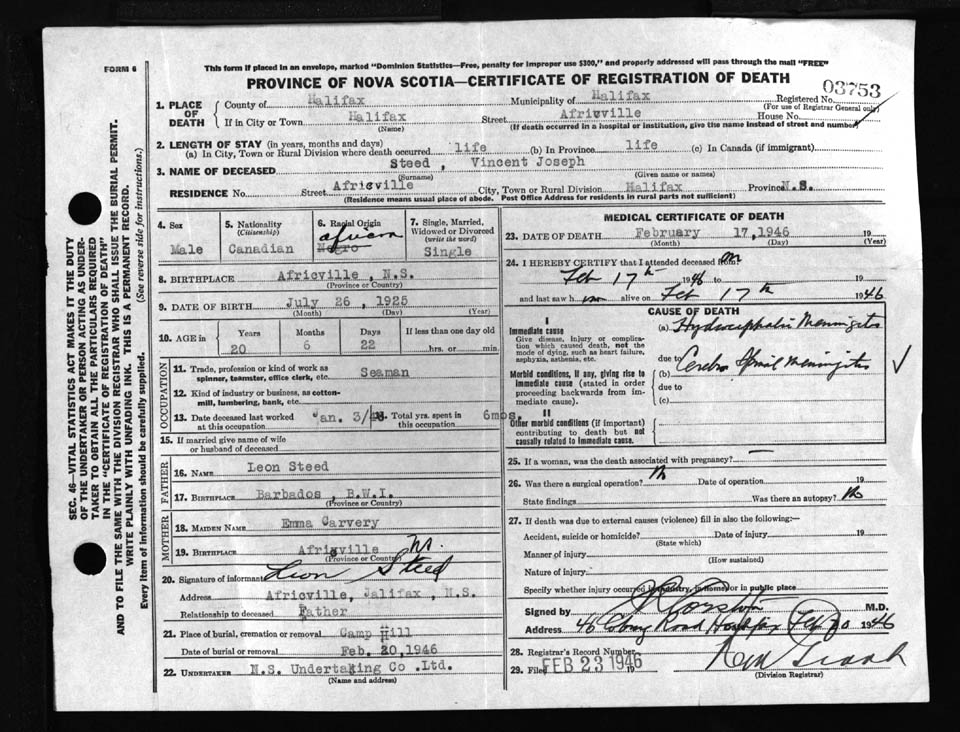 FORM 6
This form if placed in an envelope, marked "Dominion Statistics—Free, penalty for improper use $300," and properly addressed will pass through the mail "FREE"
PROVINCE OF NOVA SCOTIA—CERTIFICATE OF REGISTRATION OF DEATH
03753
SEC. 46—VITAL STATISTICS ACT MAKES IT THE DUTY
OF THE UNDERTAKER OR PERSON ACTING AS UNDER-
TAKER TO OBTAIN ALL THE PARTICULARS REQUIRED
IN THE "CERTIFICATE OF REGISTRATION OF DEATH"
AND TO FILE THE SAME WITH THE DIVISION REGISTRAR WHO SHALL ISSUE THE BURIAL PERMIT.
WRITE PLAINLY WITH UNFADING INK. THIS IS A PERMANENT RECORD.
Every item of information should be carefully supplied. (See reverse side for instructions.)
1. PLACE OF DEATH
County of Halifax Municipality of Halifax Registered No.
(For use of Registrar General only)
If in City or Town Halifax Street Africville House No.
(Name) (If death occurred in a hospital or institution, give the name instead of street and number)
2. LENGTH OF STAY (in years, months and days)
(a) In City, Town or Rural Division where death occurred life (b) In Province life (c) In Canada (if immigrant)
3. NAME OF DECEASED Steed, Vincent Joseph
(Surname) (Given name or names)
RESIDENCE No. Street Africville City, Town or Rural Division Halifax Province N.S.
(Residence means usual place of abode. Post Office Address for residents in rural parts not sufficient)
4. Sex
Male
5. Nationality
(Citizenship)
Canadian
6. Racial Origin
Negro
7. Single, Married,
Widowed or Divorced
(write the word)
Single
8. BIRTHPLACE Africville, N.S.
(Province or Country)
9. DATE OF BIRTH July 26, 1925
(Month) (Day) (Year)
10. AGE in
Years Months Days If less than one day old
20 6 22 hrs. or min.
OCCUPATION
11. Trade, profession or kind of work as
spinner, teamster, office clerk, etc. Seaman
12. Kind of industry or business, as cotton-
mill, lumbering, bank, etc.
13. Date deceased last worked
at this occupation Jan. 3/46
14. Total yrs. spent in
this occupation 6mos.
15. If married give name of wife
or husband of deceased
FATHER
16. NAME Leon Steed
17. BIRTHPLACE Barbados, B.W.I.
(Province or Country)
MOTHER
18. MAIDEN NAME Emma Carvery
19. BIRTHPLACE Africville N.S.
(Province or Country)
20. Signature of informant Leon Steed
Address Africville, Jalifax, N.S.
Relationship to deceased Father
21. Place of burial, cremation or removal Camp Hill
Date of burial or removal Feb. 20,1946
22. UNDERTAKER N.S. Undertaking Co .Ltd.
(Name and address)
MEDICAL CERTIFICATE OF DEATH
23. DATE OF DEATH February 17,1946 19
(Month) (Day) (Year)
24. I HEREBY CERTIFY that I attended deceased from: on
Feb 17th 1946 to 19
and last saw him alive on Feb 17th 1946
CAUSE OF DEATH
I
Immediate cause
Give disease, injury or complica-
tion which caused death, not the
mode of dying, such as heart failure,
asphyxia, asthenia, etc.
(a) Hydrocephalis Meningitis
due to
Morbid conditions, if any, giving rise to
immediate cause (stated in order
proceeding backwards from im-
mediate cause).
(b) Cerebro Spinal Meningitis
due to
(c)
II
Other morbid conditions (if important)
contributing to death but not
causally related to immediate cause.
25. If a woman, was the death associated with pregnancy? —
26. Was there a surgical operation? No Date of operation 19
State findings Was there an autopsy? No
27. If death was due to external causes (violence) fill in also the following:—
Accident, suicide or homicide? Date of injury 19
(State which)
Manner of injury
(How sustained)
Nature of injury
Specify whether injury occurred in industry, in home, or in public place
Signed by M.D.
Address 46 Coburg Road Halifax Feb 20 1946
28. Registrar's Record Number
29. Filed FEB 23 1946 19
(Division Registrar)